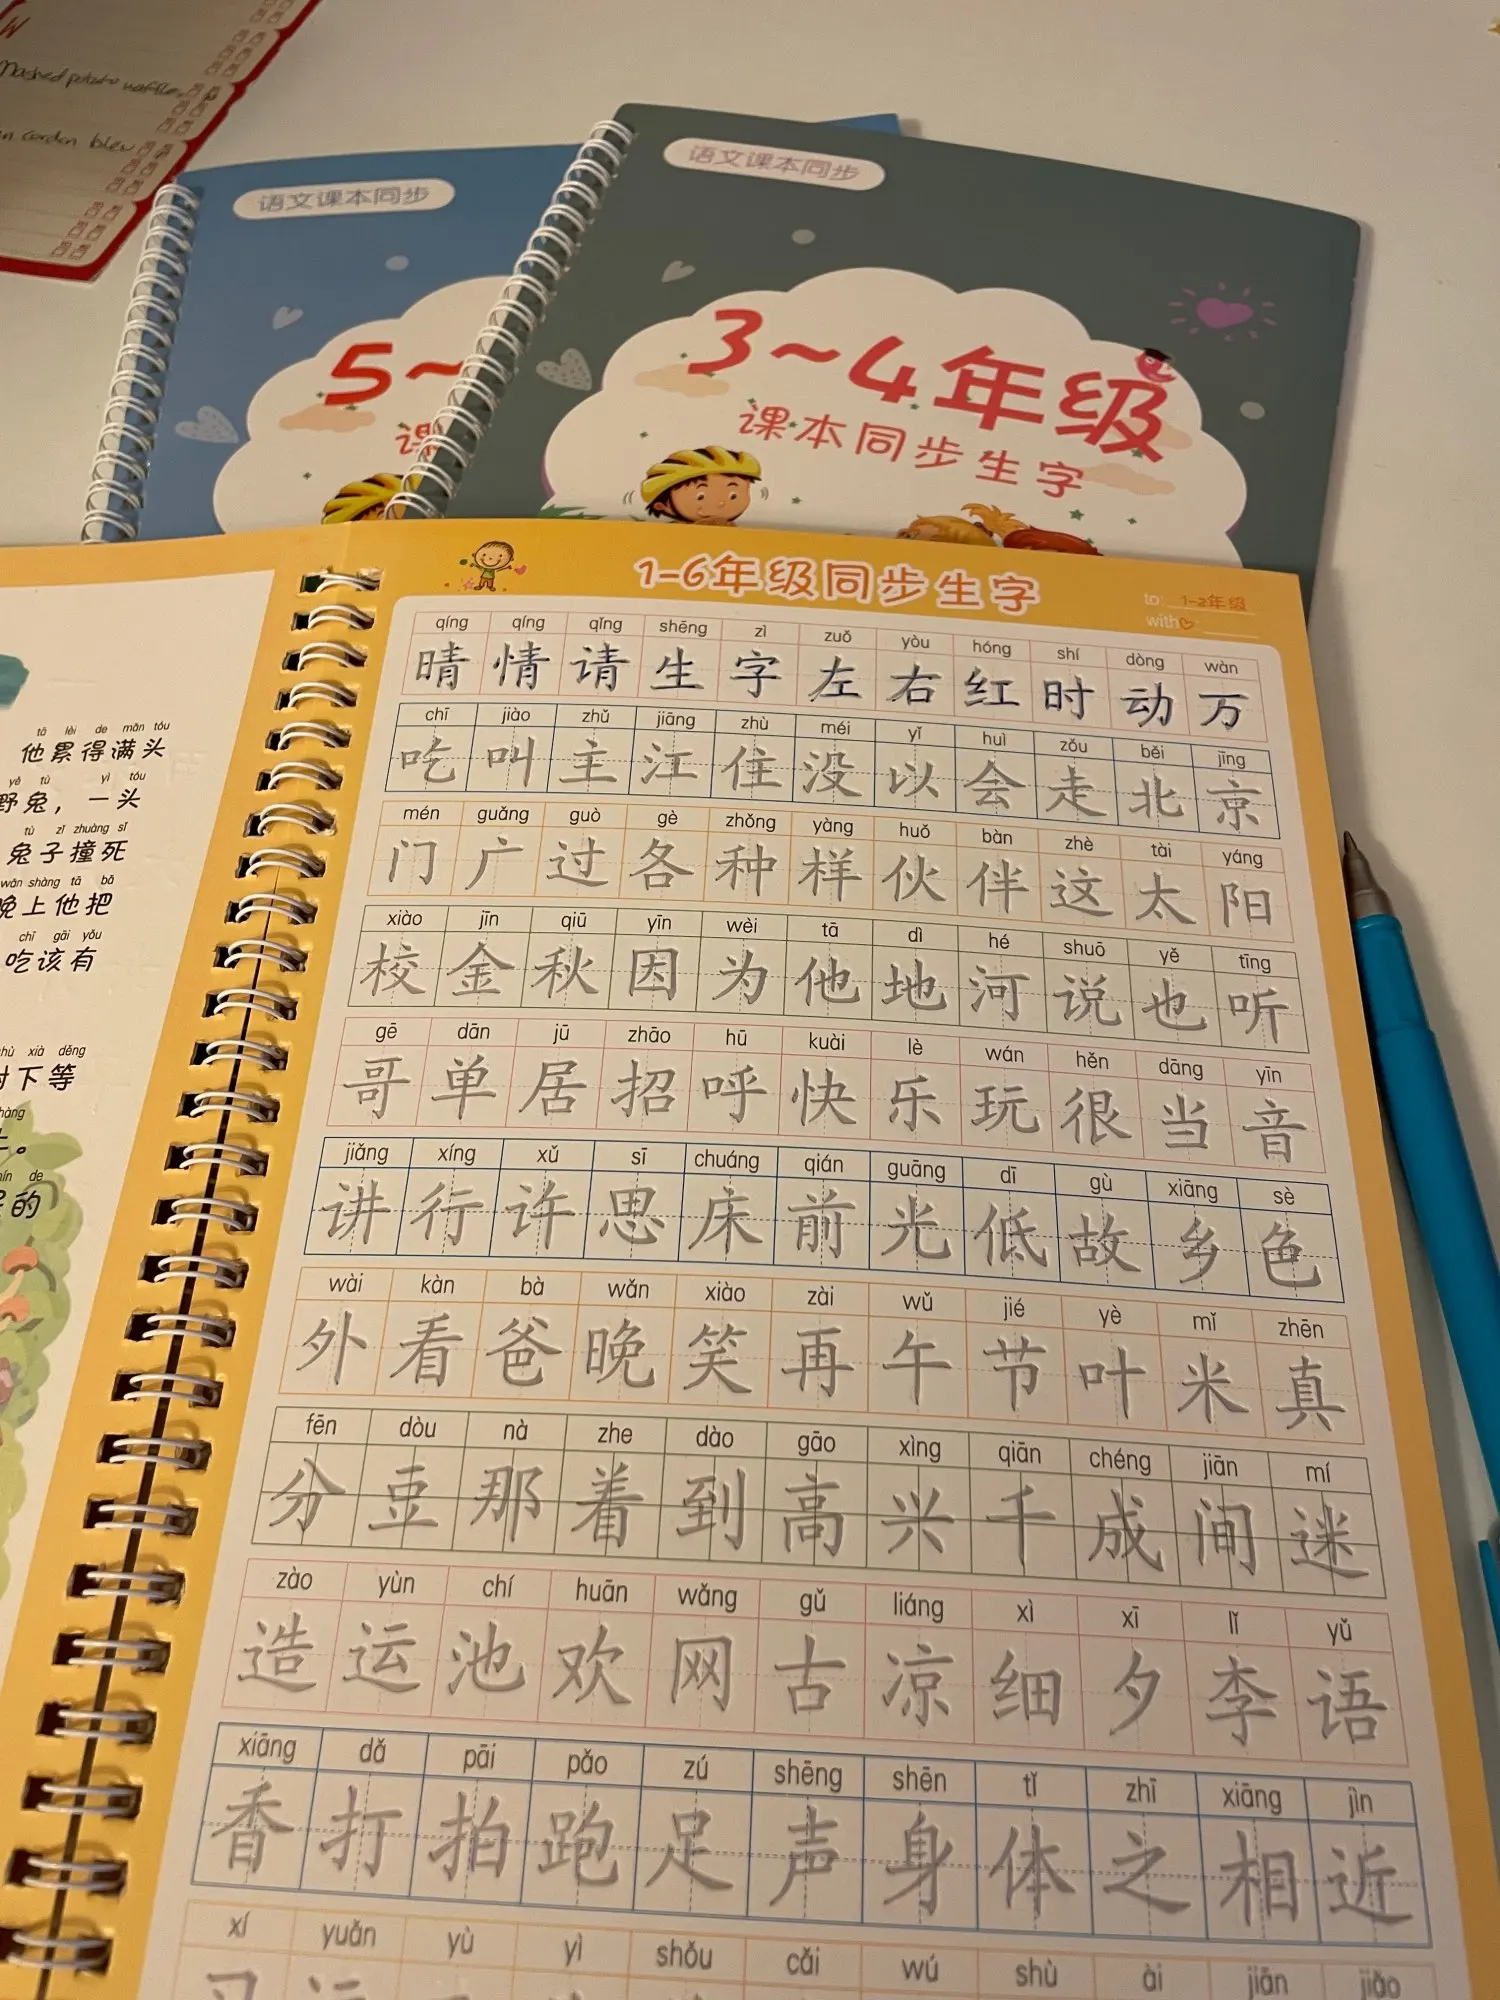 Mashed potato waffle
cordon bleu
语文课本同步
语文课本同步
5~
课
3~4年级
课本同步生字
1-6年级同步生字
to: 1-2年级
with
tā lèi de mǎn tóu
他累得满头
yě tù yì tóu
野兔，一头
tù zǐ zhuàng sǐ
兔子撞死
wǎn shàng tā bǎ
晚上他把
chī gāi yǒu
吃该有
shù xià děng
树下等
de
的
qíng qíng qǐng shēng zì zuǒ yòu hóng shí dòng wàn
晴 情 请 生 字 左 右 红 时 动 万
chī jiào zhǔ jiāng zhù méi yǐ huì zǒu běi jīng
吃 叫 主 江 住 没 以 会 走 北 京
mén guǎng guò gè zhǒng yàng huǒ bàn zhè tài yáng
门 广 过 各 种 样 伙 伴 这 太 阳
xiào jīn qiū yīn wèi tā dì hé shuō yě tīng
校 金 秋 因 为 他 地 河 说 也 听
gē dān jū zhāo hū kuài lè wán hěn dāng yīn
哥 单 居 招 呼 快 乐 玩 很 当 音
jiǎng xíng xǔ sī chuáng qián guāng dī gù xiāng sè
讲 行 许 思 床 前 光 低 故 乡 色
wài kàn bà wǎn xiào zài wǔ jié yè mǐ zhēn
外 看 爸 晚 笑 再 午 节 叶 米 真
fēn dòu nà zhe dào gāo xìng qiān chéng jiān mí
分 豆 那 着 到 高 兴 千 成 间 迷
zào yùn chí huān wǎng gǔ liáng xì xī lǐ yǔ
造 运 池 欢 网 古 凉 细 夕 李 语
xiāng dǎ pāi pǎo zú shēng shēn tǐ zhī xiāng jìn
香 打 拍 跑 足 声 身 体 之 相 近
xí yuǎn yù yì shǒu cǎi wú shù ài jiān jiǎo